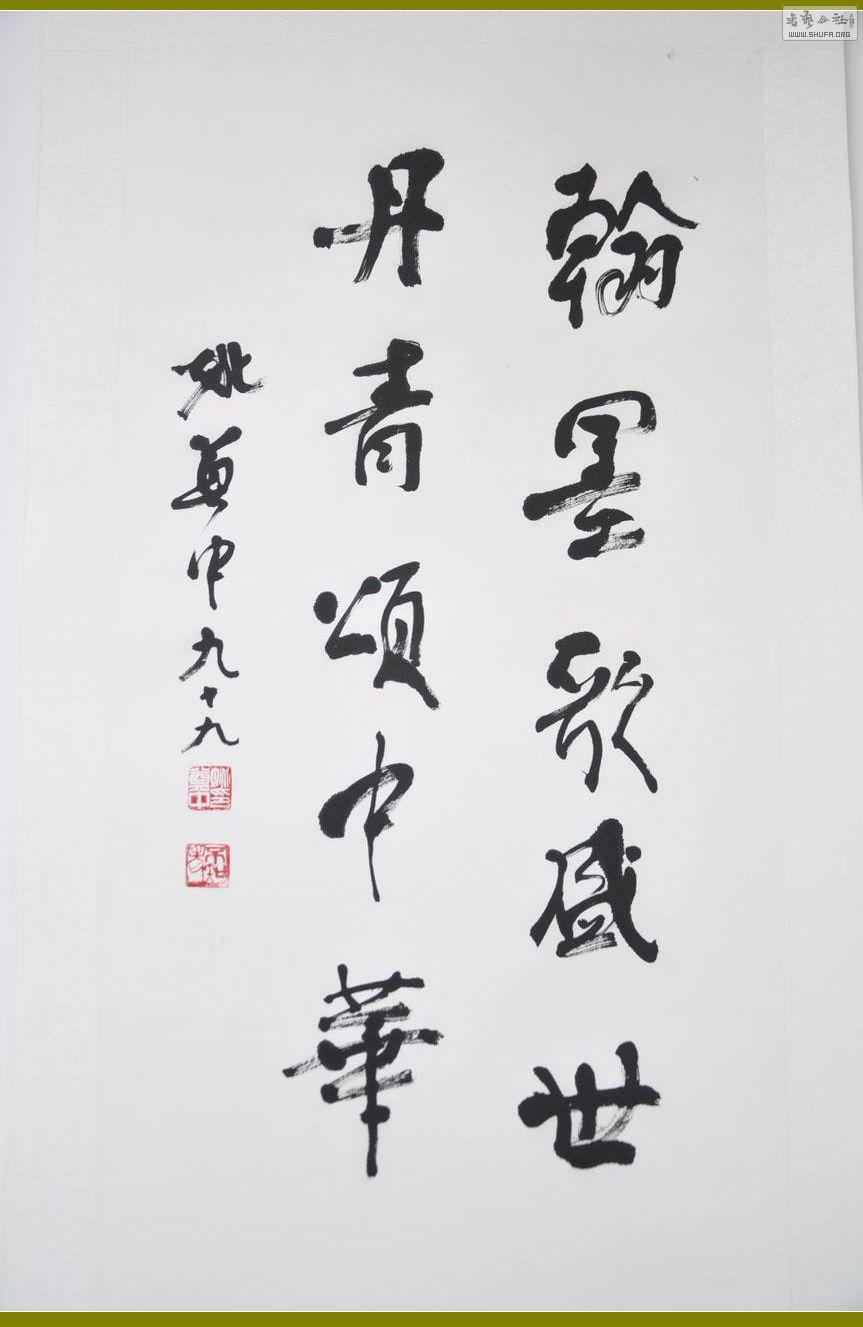 翰墨歌盛世
丹青頌中華
姚奠中九十九
書藝公社
WWW.SHUFA.ORG